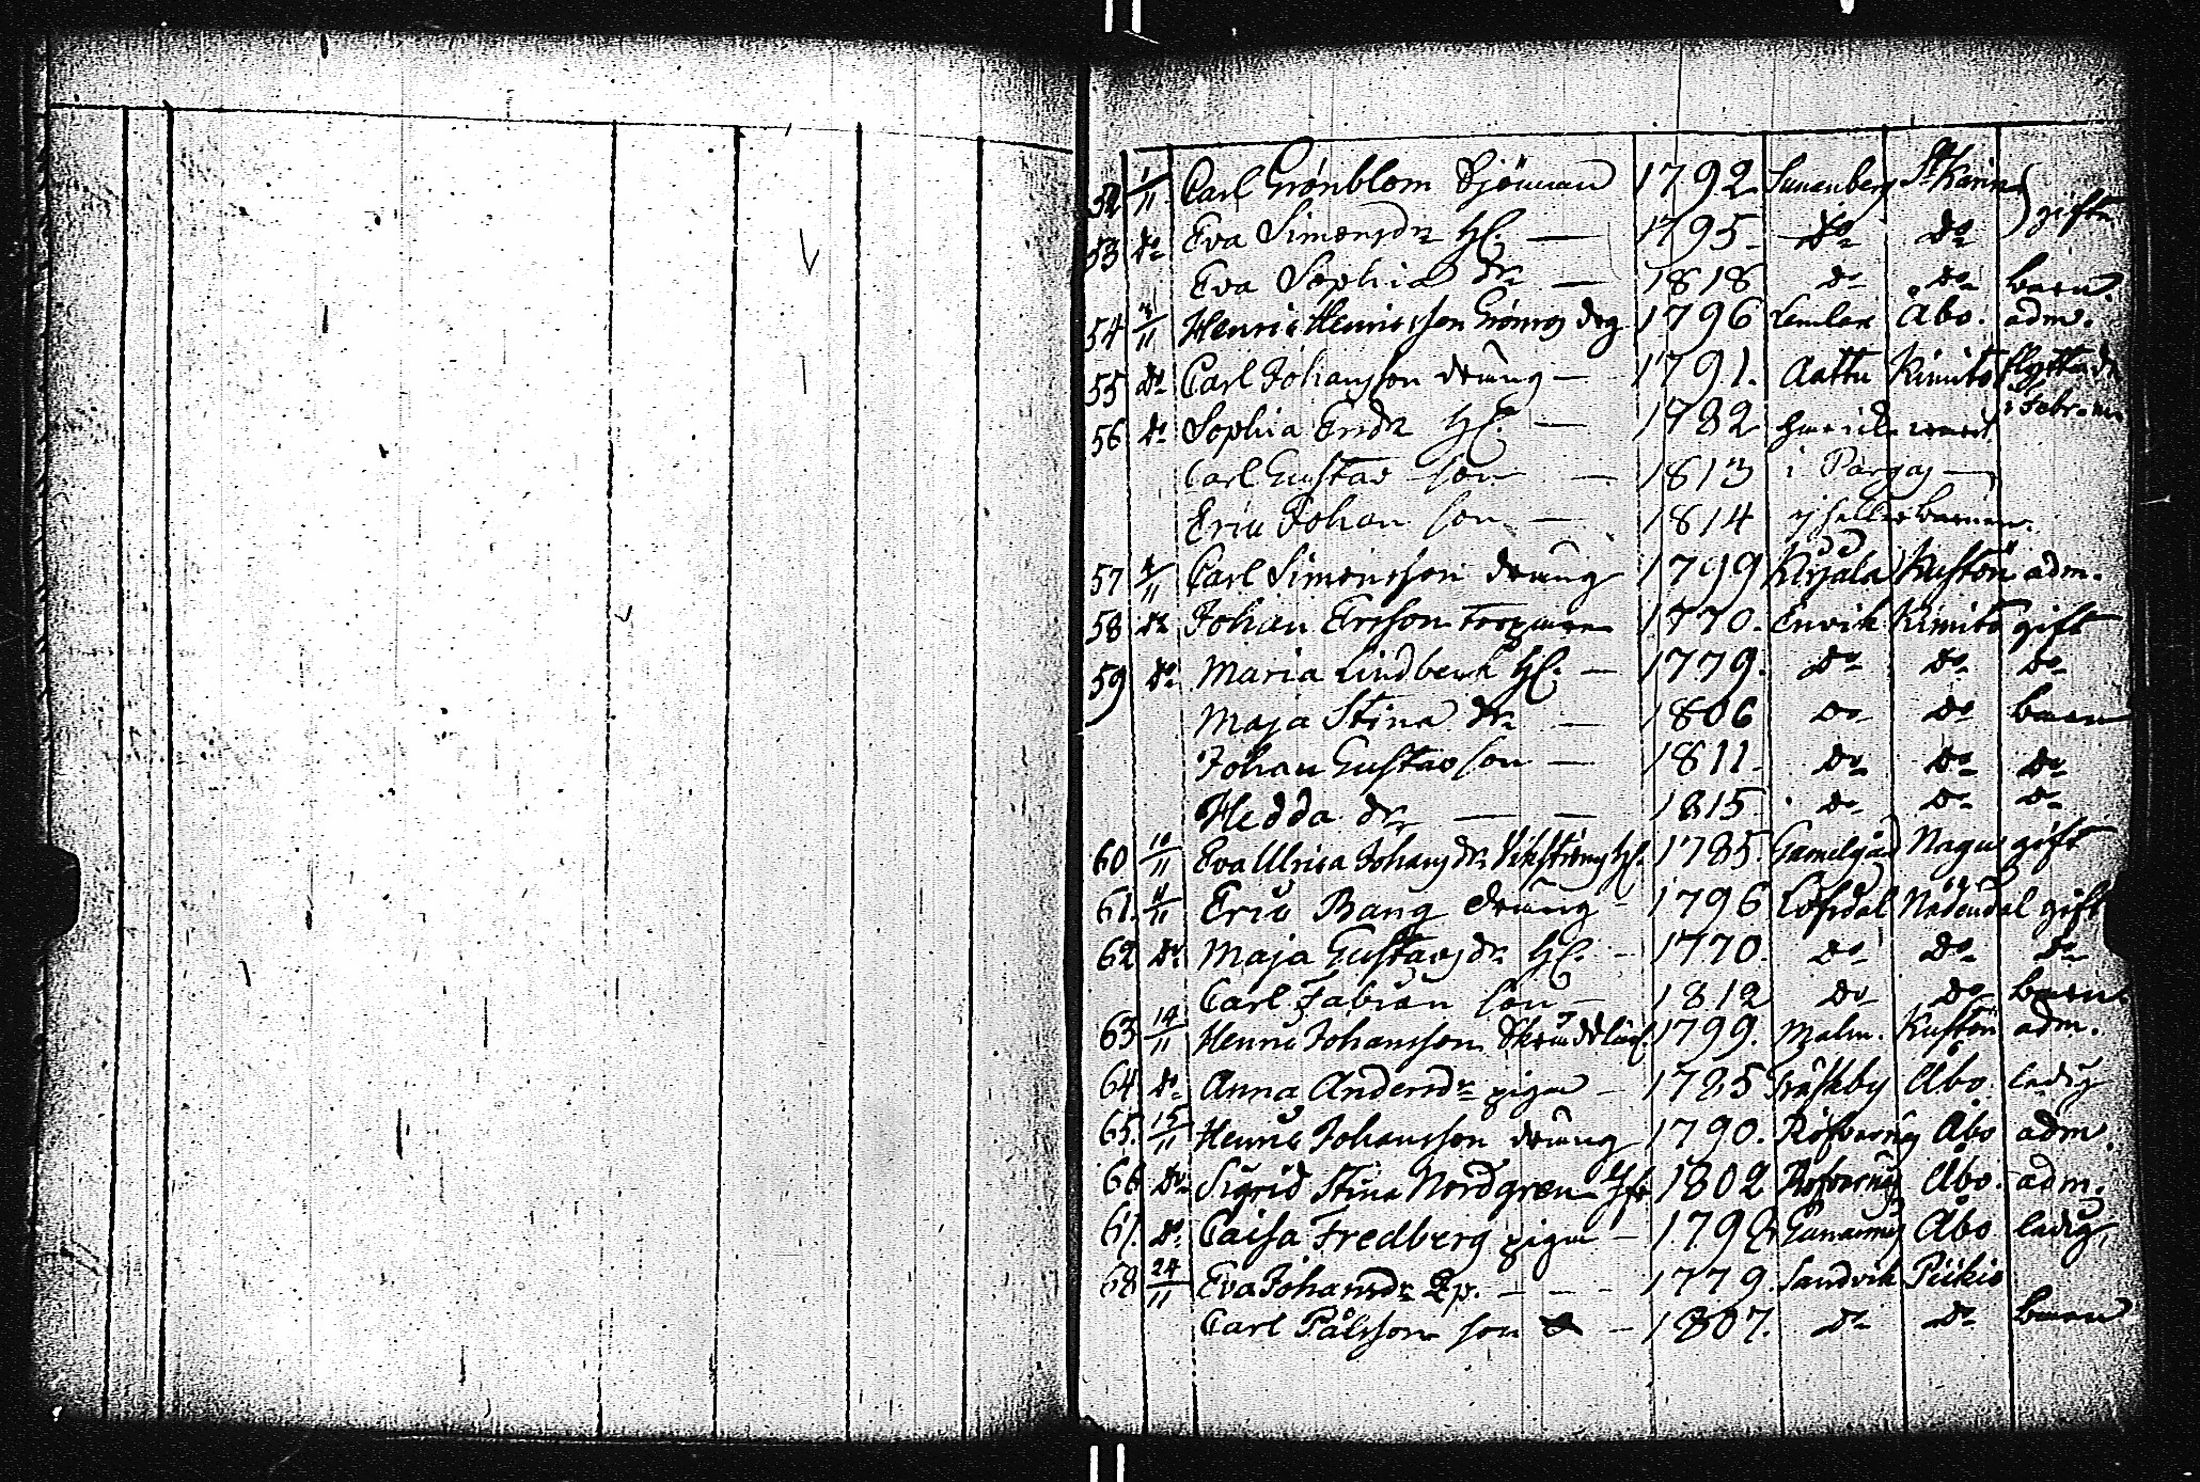 52 1/11 Carl Grönblom Sjöman 1792 Lunenberg St Karins gifte
53 do Eva Simonsdr H. — 1795 do do
Eva Sophia dr — 1818 do do barn.
54 3/11 Henric Henricsson Grönros drg 1796 Lemlax Åbo. adm.
55 do Carl Johansson dräng — 1791. Aattu Kimito flyttade
56 do Sophia Ersdr H. — 1782 i Febr.
Carl Gustav son — 1813 i Pargas —
Eric Johan son — 1814 ej heller barnen.
57 4/11 Carl Simonsson dräng 1799 Kirjala Kustön adm.
58 do Johan Ersson Torpare 1770. Envik Kimito gift
59 do Maria Lindberk H. — 1779. do do do
Maja Stina dr — 1806 do do barn
Johan Gustav son — 1811 do do do
Hedda dr — — 1815 do do do
60 10/11 Eva Ulrica Johansdr H. 1785 Gamelgård Nagu gift
61. 11/11 Eric Bang dräng 1796 Löfsdal Nådendal gift
62 do Maja Gustavsdr H. — 1770. do do do
Carl Fabian son — 1812 do do barn
63 14/11 Henric Johansson Skräddlärl. 1799. Malm. Kustön adm.
64 do Anna Andersdr piga — 1785 Gräskby Åbo ledig
65. 15/11 Henric Johansson dräng 1790. Röfvarnäs Åbo adm.
66 do Sigrid Stina Nordgren Jfr 1802 Röfvarnäs Åbo. adm.
67. do Caisa Fredberg piga — 1792 Gunnarnäs Åbo ledig
68 24/11 Eva Johansdr — — — 1779. Sandvik Piikis
Carl Pålsson son — 1807. do do barn